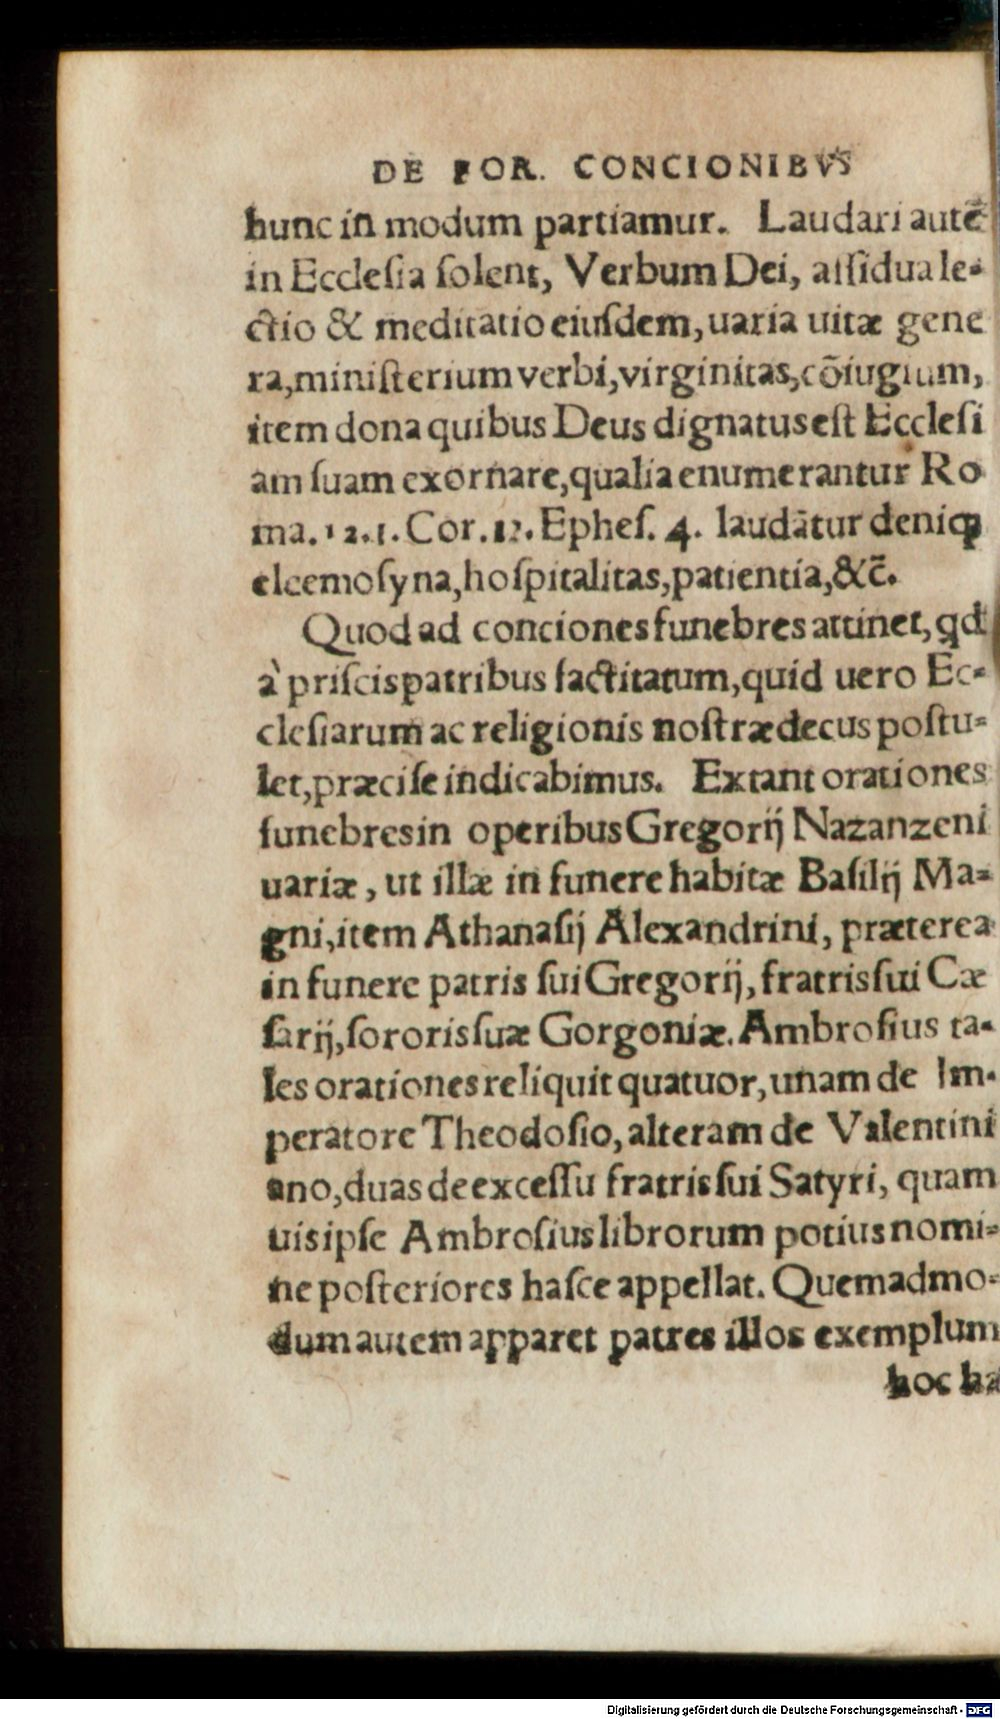 DE FOR. CONCIONIBVS
hunc in modum partiamur. Laudari autē
in Ecclesia solent, Verbum Dei, assidua le-
ctio & meditatio eiusdem, uaria uitæ gene
ra, ministerium verbi, virginitas, cōiugium,
item dona quibus Deus dignatus est Ecclesi
am suam exornare, qualia enumerantur Ro
ma. 12. 1. Cor. 12. Ephes. 4. laudātur deniqꝫ
eleemosyna, hospitalitas, patientia, &c̄.
Quod ad conciones funebres attinet, qd
à priscis patribus factitatum, quid uero Ec-
clesiarum ac religionis nostræ decus postu-
let, præcise indicabimus. Extant orationes
funebres in operibus Gregorij Nazanzeni
uariæ, ut illæ in funere habitæ Basilij Ma-
gni, item Athanasij Alexandrini, præterea
in funere patris sui Gregorij, fratris sui Cæ
sarij, sororis suæ Gorgoniæ. Ambrosius ta-
les orationes reliquit quatuor, unam de Im-
peratore Theodosio, alteram de Valentini
ano, duas de excessu fratris sui Satyri, quam
uis ipse Ambrosius librorum potius nomi-
ne posteriores hasce appellat. Quemadmo-
dum autem apparet patres illos exemplum
hoc ha
Digitalisierung gefördert durch die Deutsche Forschungsgemeinschaft - DFG